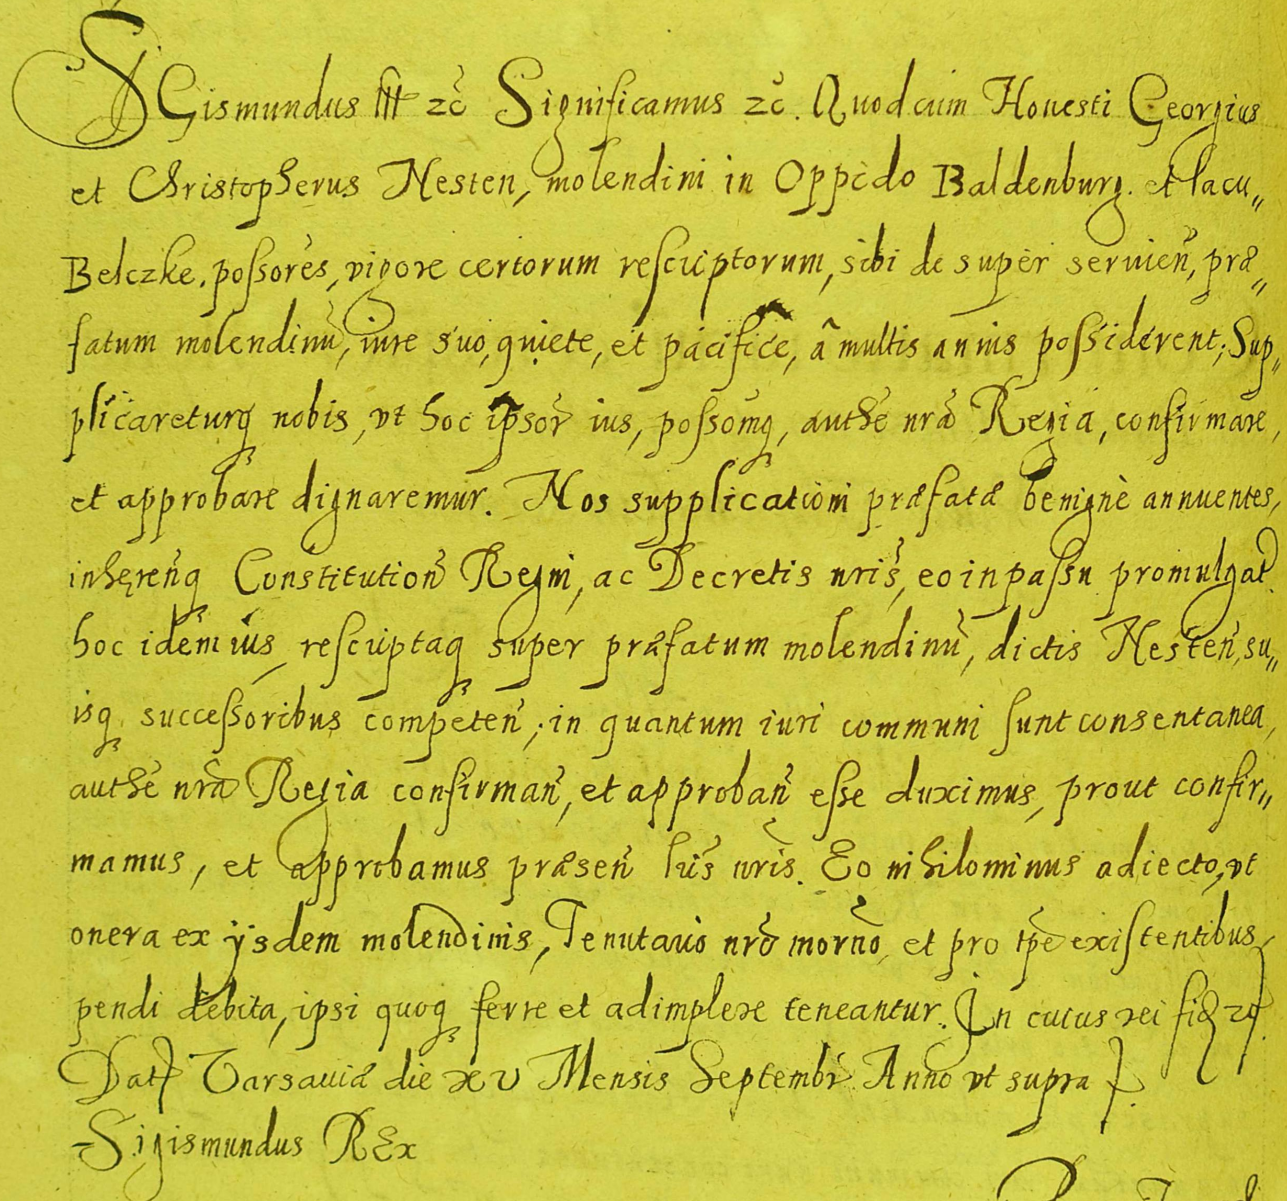 SGismundus III zc̄ Significamus zc̄. Quod cum Honesti Georgius
et Christopherus Nesten, molendini in Oppido Baldenburg. et lacu„
Belczke. possores, vigore certorum rescriptorum, sibi de super seruien̄, præ„
fatum molendinū, iure suo, quiete, et pacifice, â multis annis possiderent; Sup„
plicareturq nobis, vt hoc ipsor̄ ius, possomq, authē nrā Regia, confirmare,
et approbare dignaremur. Nos supplicationi præfatæ benignè annuentes,
inhęren̄q Constitution̄ Regni, ac Decretis nris̄, eo in passu promulgat.
hoc idem ius, rescriptaq super præfatum molendinū, dictis Nesten̄, su„
isq successoribus competen̄; in quantum iuri communi sunt consentanea,
authē nrā Regia confirman̄, et approban̄ esse duximus, prout confir„
mamus, et approbamus præsen̄ lris̄ nris̄. Eo nihilominus adiecto, vt
onera ex ijsdem molendinis, Tenutario nrō morn̄o, et pro tp̄e existentibus
pendi debita, ipsi quoq ferre et adimplere teneantur. In cuius rei fid zc̄
Dat Varsauiæ die xv Mensis Septembr̄ Anno vt supra
Sigismundus REx